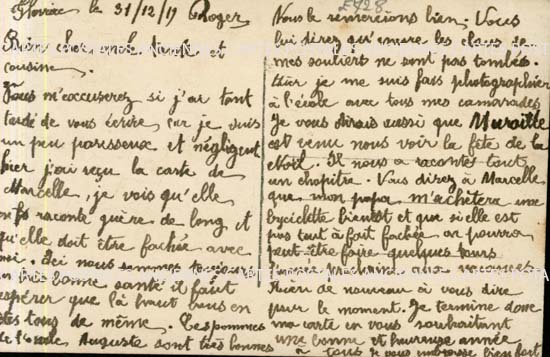 le 31/12/19 Roger
Bien cher oncle tante et
cousine.
Vous m'excuserez si j'ai tant
tardé de vous écrire, car je suis
un peu paresseux et négligent
hier j'ai reçu la carte de
Marcelle, je vois qu'elle
raconte guère de long, et
qu'elle doit être fachée avec
moi. Ici nous sommes toujours
en très bonne santé il faut
espérer que là haut vous en
êtes tous de même. Les pommes
de l'oncle Auguste sont très bonnes
£428
Nous le remercions bien. Vous
lui direz qu'encore les clous de
mes souliers ne sont pas tombés.
je me suis fais photographier
à l'école avec tous mes camarades
Je vous dirais aussi que
est venu nous voir la fête de la
Noël. Il nous a racontés tout
un chopitre. Vous direz à Marcelle
que mon papa m'achètera une
byciclette bientot et que si elle est
pas tout à fait fachée on pourra
peut-être faire quelques tours
aux vacances.
Rien de nouveau à vous dire
pour le moment. Je termine donc
ma carte en vous souhaitant
une bonne et heureuse année
à tous je vous embrasse bien fort